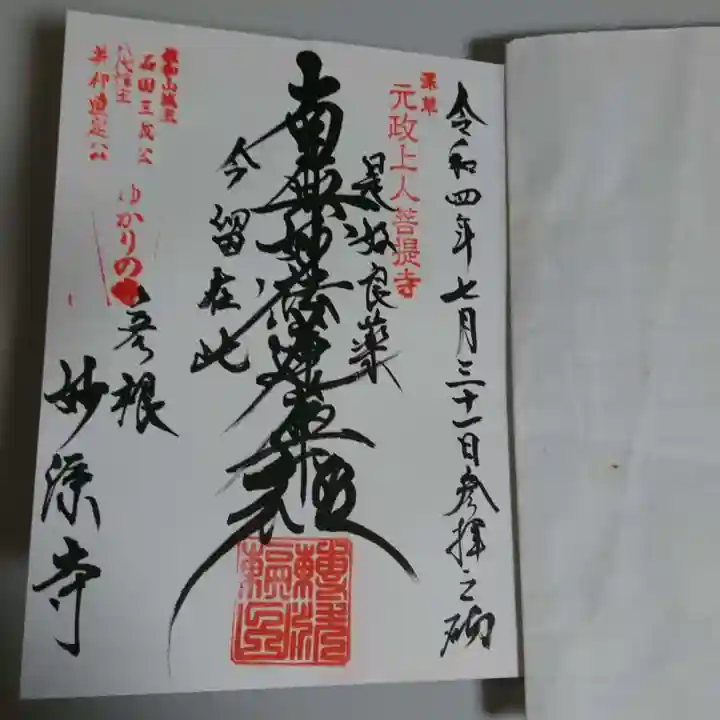 令和四年七月三十一日参拝之砌
深草
元政上人菩提寺
是好良薬
南無妙法蓮華経
今留在此
佐和山城主
石田三成公
八代藩主
井伊直定公
ゆかりの
彦根
妙源寺